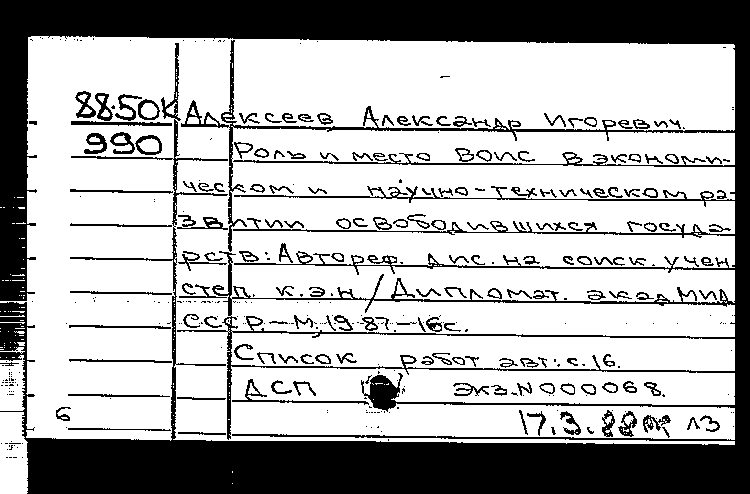 88.50К Алексеев Александр Игоревич
990 Роль и место ВОИС в экономи-
ческом и научно-техническом ра-
звитии освободившихся госуда-
рств: Автореф. дис. на соиск. учен.
степ. к.э.н / Дипломат. акад МИД
СССР. – М, 1987. – 16с.
Список работ авт: с. 16.
ДСП экз. N000068.
6 17.3.88 ЛЗ